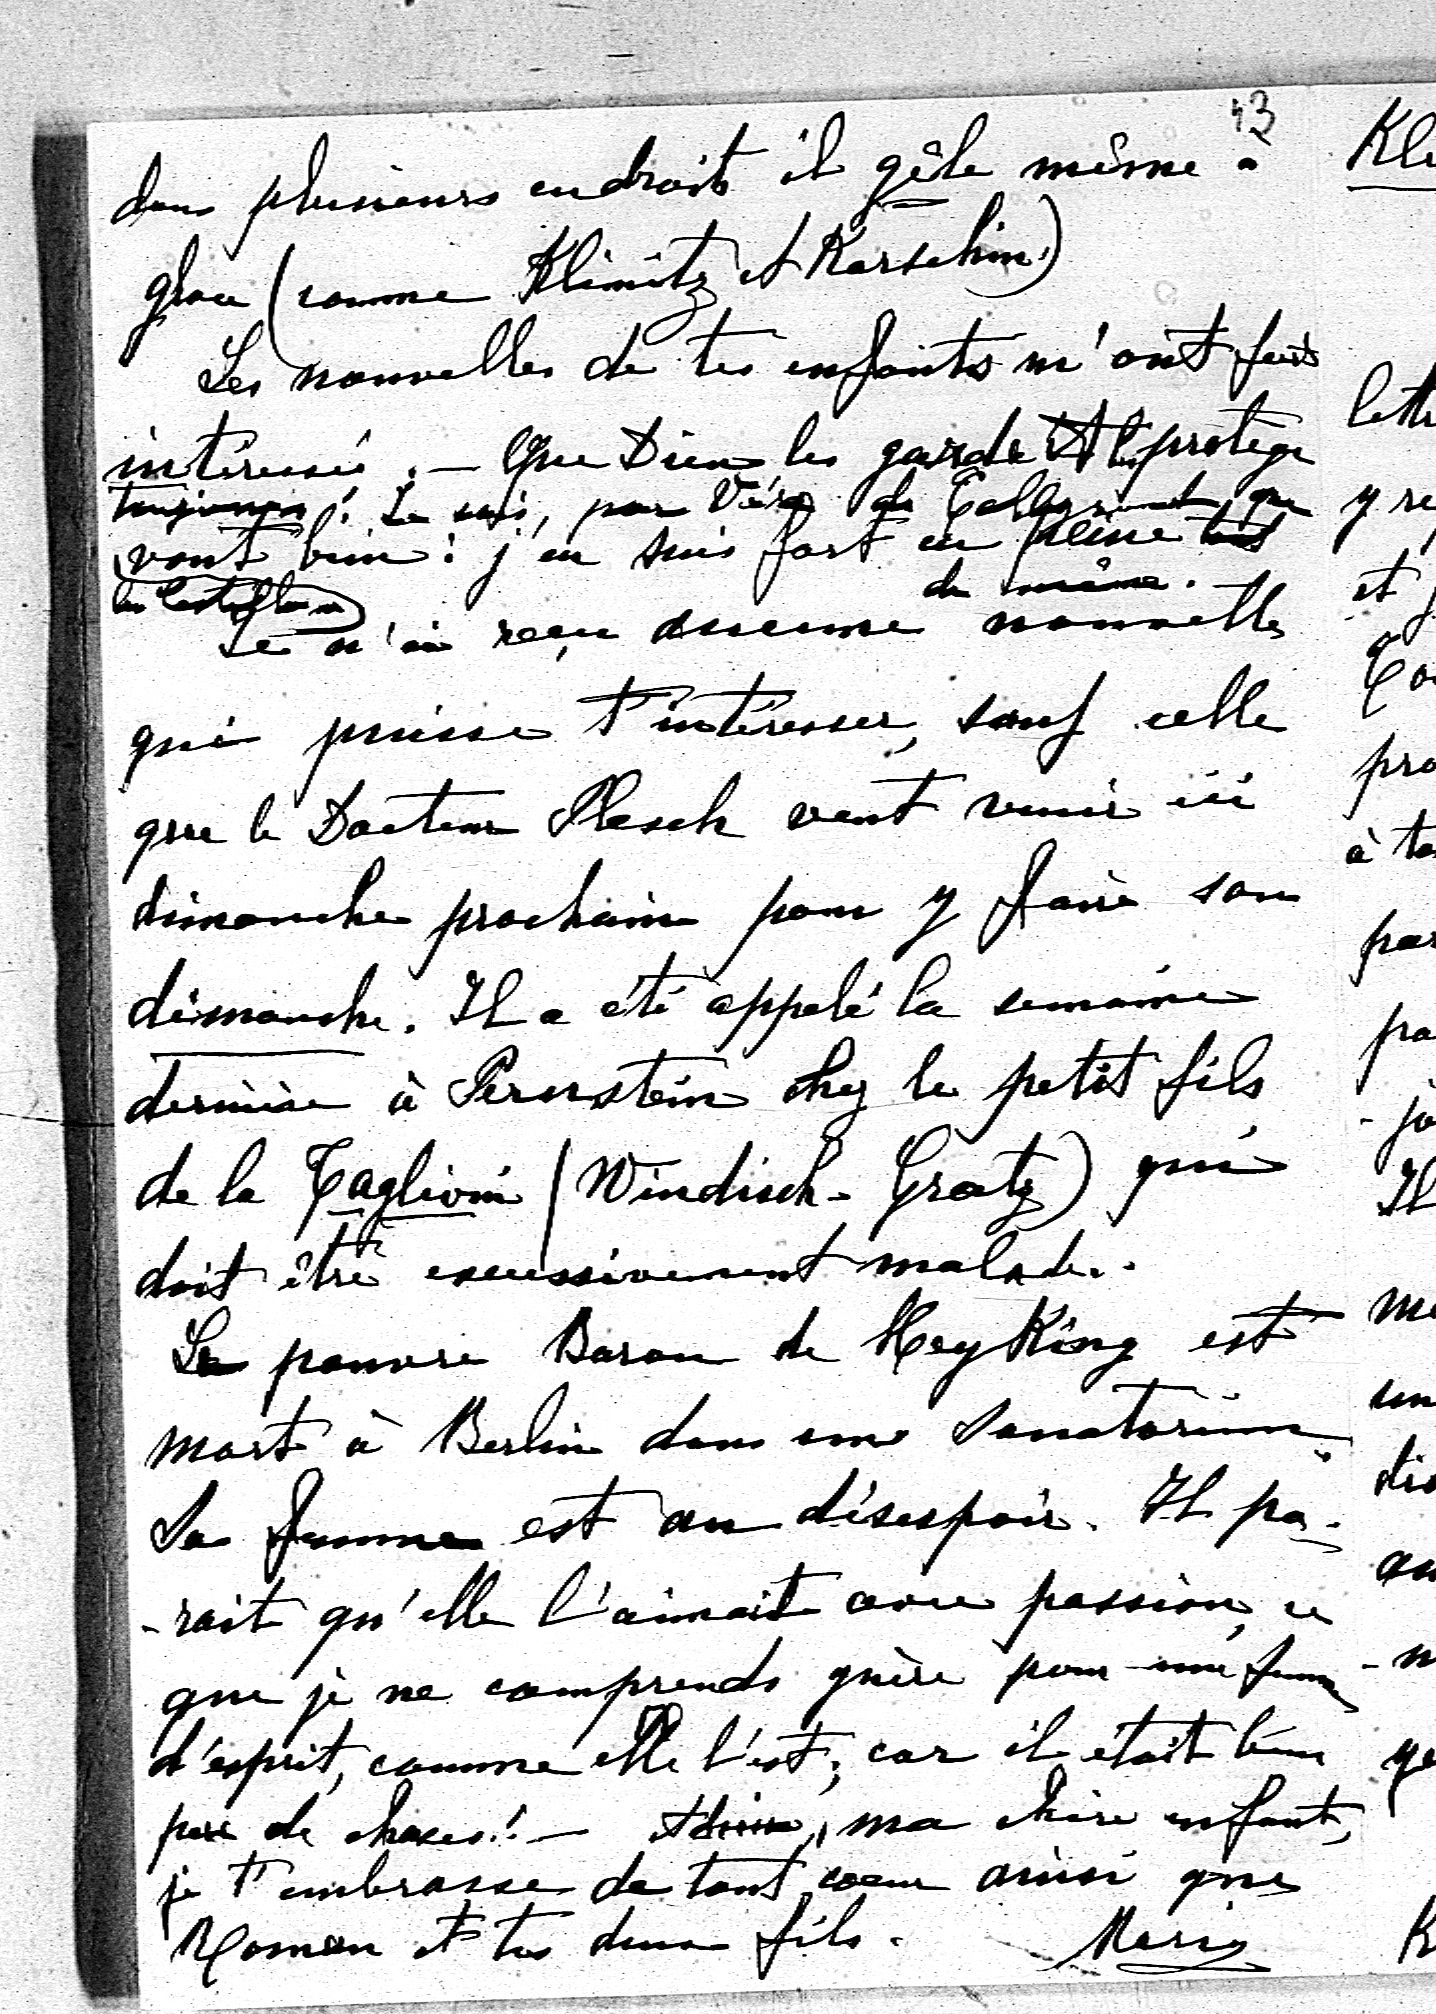 43
dans plusieurs endroits il gêle même à
glace (comme Klinitz et Karschin.)
Les nouvelles de tes enfants m'ont fort
intéressée. — Que Dieu les garde et les protège
toujours! Je sais, par de que
vont bien: j'en suis fort en peine tout
les Castellane de même.
Je n'ai reçu aucune nouvelle
qui puisse t'intéresser, sauf celle
que le Docteur Plesch veut venir ici
dimanche prochain pour y faire son
dimanche. Il a été appelé la semaine
dernière à Pernstein chez le petit fils
de la Taglioni (Windisch-Graetz) qui
doit être excessivement malade.
Le pauvre Baron de HeyKing est
mort à Berlin dans un Sanatorium.
Sa femme est au désespoir. Il pa-
-rait qu'elle l'aimait avec passion, ce
que je ne comprends guère pour une femme
d'esprit, comme elle l'est; car il était bien
peu de choses! — Adieu, ma chère enfant,
je t'embrasse de tout coeur ainsi que
Roman et tes deux fils. Marie